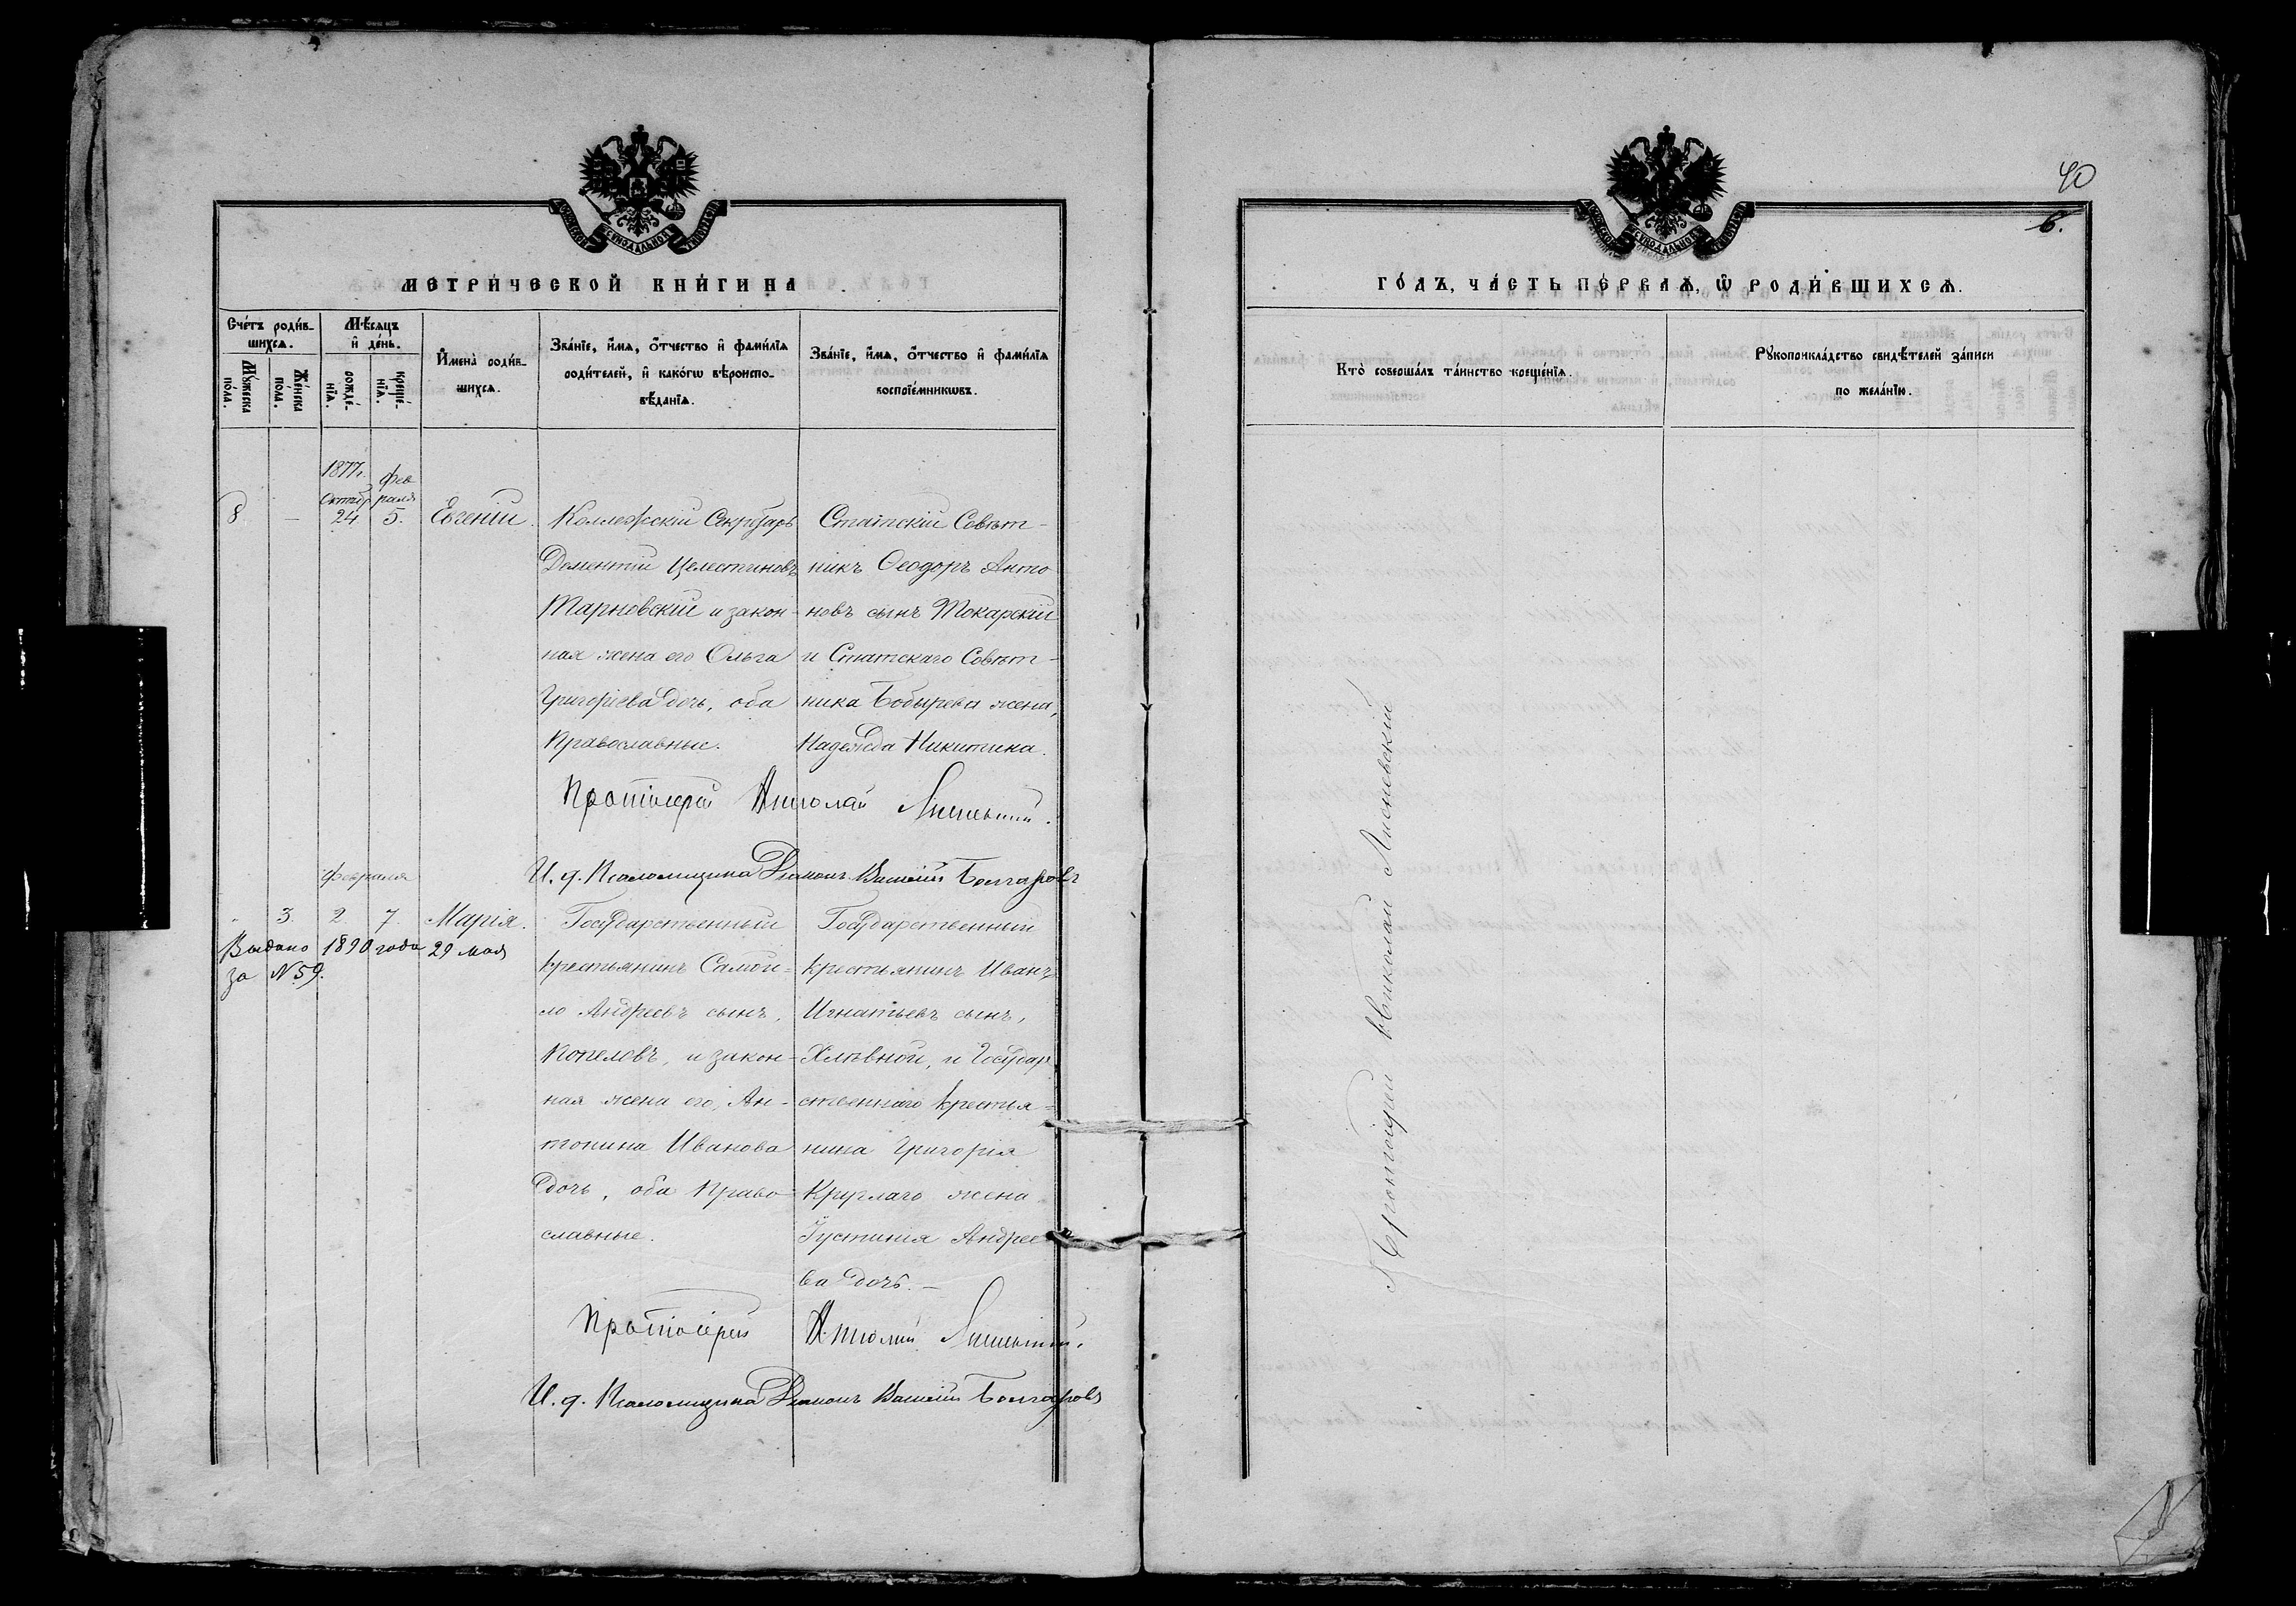 МОСКОВСКОЙ СѴНОДАЛЬНОЙ ТИПОГРАФІИ
МЕТРИ́ЧЕСКОЙ КНИ́ГИ НА
Сче́тъ роди́в-
шихсѧ.
Мꙋ́жеска
по́ла.
Же́нска
по́ла.
Мѣ́сѧцъ
и҆ де́нь.
рожде́-
нїѧ.
креще́-
нїѧ.
И҆мена̀ роди́в-
шихсѧ.
Зва́нїе, и҆́мѧ, ѻ҆́тчество и҆ фами́лїѧ
роди́телей, и҆ како́гѡ вѣроиспо-
вѣ́данїѧ.
Зва́нїе, и҆́мѧ, ѻ҆́тчество и҆ фами́лїѧ
воспрїе́мникѡвъ.
1877.
Октяб
24
Фев
раля
5.
8
—
Евгеній.
Коллежскій Секретарь
Дементій Целестиновъ
Тарновскій и закон-
ная жена его Ольга
Григоріева дочь, оба
Православные.
Статскій Совѣт-
никъ Ѳеодоръ Анто
новъ сынъ Токарскій
и Статскаго Совѣт-
ника Бобырева жена,
Надежда Никитина.
Протоіерей Николай Лисневскій.
И. д. Псаломщика Діаконъ Василій Болгаровъ
Февраля
3. 2. 7. Марія.
Выдано 1890 года 29 Мая
за №59.
Государственный
крестьянинъ Самой=
ло Андреевъ сынъ,
Копеловъ, и закон-
ная жена его, Ан-
тонина Иванова
дочь, оба Право-
славные.
Государственный
крестьянинъ Иванъ
Игнатьевъ сынъ,
Хлѣвной, и Государ
ственнаго крестья=
нина Григорія
Круглаго жена
Іустинія Андрее
ва дочь. —
Протоіерей Николай Лисневскій.
И. д. Псаломщика Діаконъ Василій Болгаровъ
40
6.
МОСКОВСКОЙ СѴНОДАЛЬНОЙ ТИПОГРАФІИ
ГО́ДЪ, ЧА́СТЬ ПЕ́РВАѦ, Ѽ РОДИ́ВШИХСѦ.
Кто̀ соверша́лъ та́инство креще́нїѧ.
Рꙋкоприкла́дство свидѣ́телей за́писи
по жела́нїю.
Протоіерей Николай Лисневскій